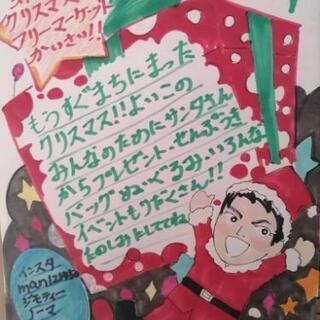 クリスマス
フリーマーケット
かいさい!!
もうすぐまちにまった
クリスマス!!よいこの
みんなのためにサンタさん
からプレゼント・せんぷうき
バッグ・ぬいぐるみ・いろんな
イベントもりだくさん!!
たのしみにしててね
インスタ
man121950
ジモティー
ノーマ